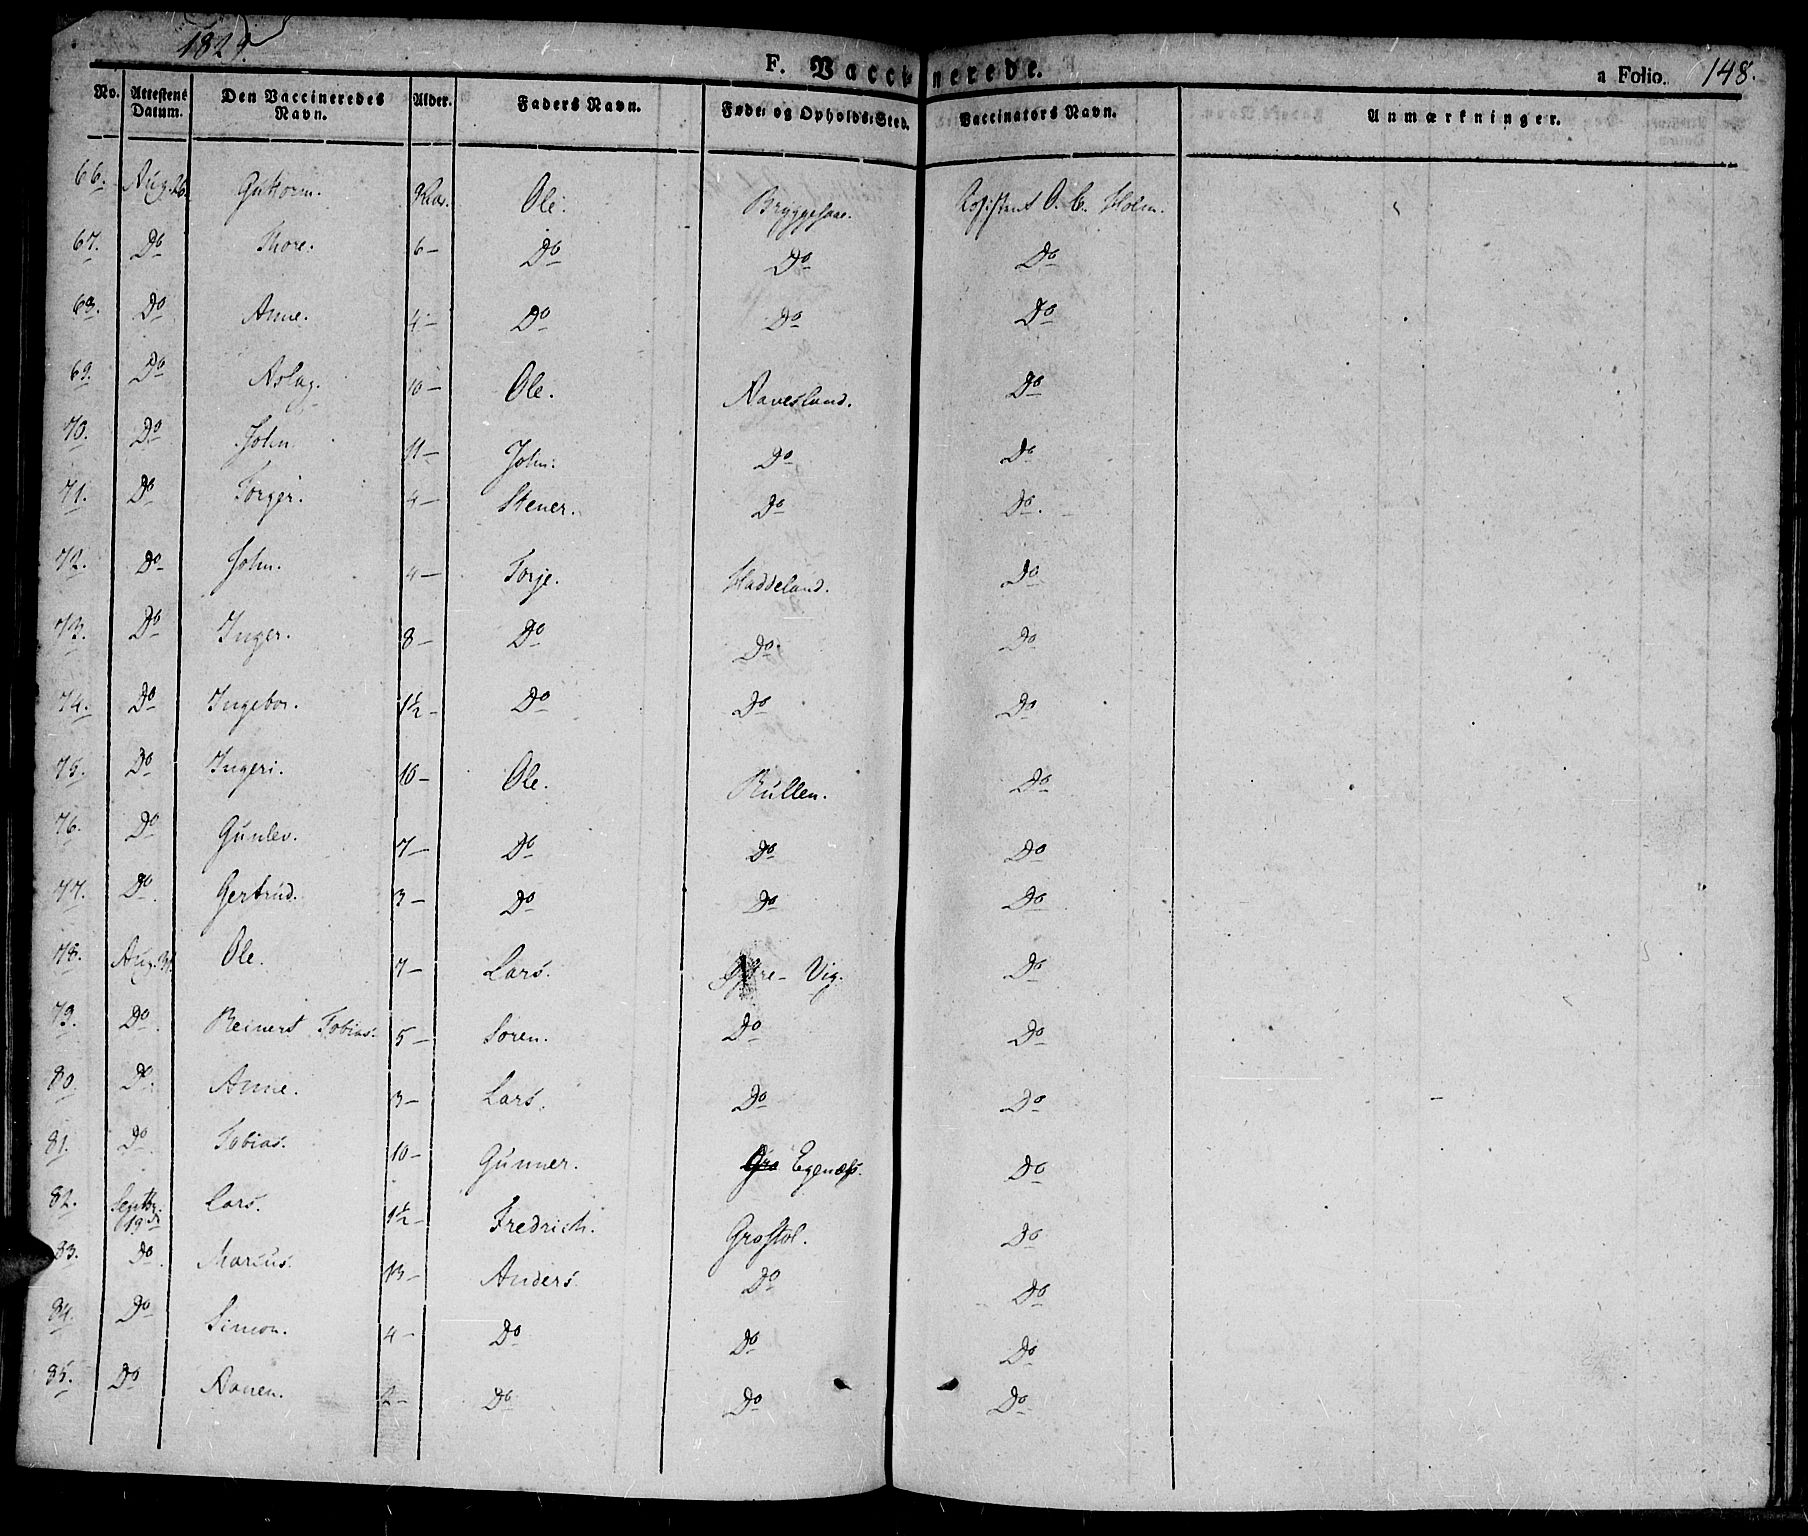 1829.
F. Vaccinerede.
a Folio. 148.
No. Attestens Datum. Den Vaccineredes Navn. Alder. Faders Navn. Føde- og Opholds-Sted. Vaccinators Navn. Anmærkninger.
66. Aug. 26. Guttorm. Ole. Bryggesaae. O. C. Holm.
67. Do Thore. 6 – Do Do Do
68. Do Anne. 4 – Do Do Do
69. Do Aslag. 10 – Ole. Aavesland. Do
70. Do John 11 – John. Do Do
71. Do Torger. 4 – Stener. Do Do.
72. Do John. 4 – Torje. Haddeland. Do
73. Do Inger. 8 – Do Do Do
74. Do Ingebor. 1½ – Do Do Do
75. Do Ingeri. 10 – Ole. Rullen. Do
76. Do Gunlev. 7 – Do Do Do
77. Do. Gertrud. 3 – Do Do Do
78. Aug. 31. Ole. 7 – Lars. Øftre – Vig. Do
79. Do. Reinert Tobias. 5 – Soren. Do Do
80. Do. Anne. 3 – Lars. Do Do
81. Do. Tobias. 10 – Gunner. Gro Egenæs. Do
82. Septbr. 19de Lars. 1½ – Fredrich. Grostøl. Do
83. Do. Marcus. 13 – Anders. Do Do
84. Do Simon. 4 – Do Do Do
85. Do Aanen. 2 – Do Do Do